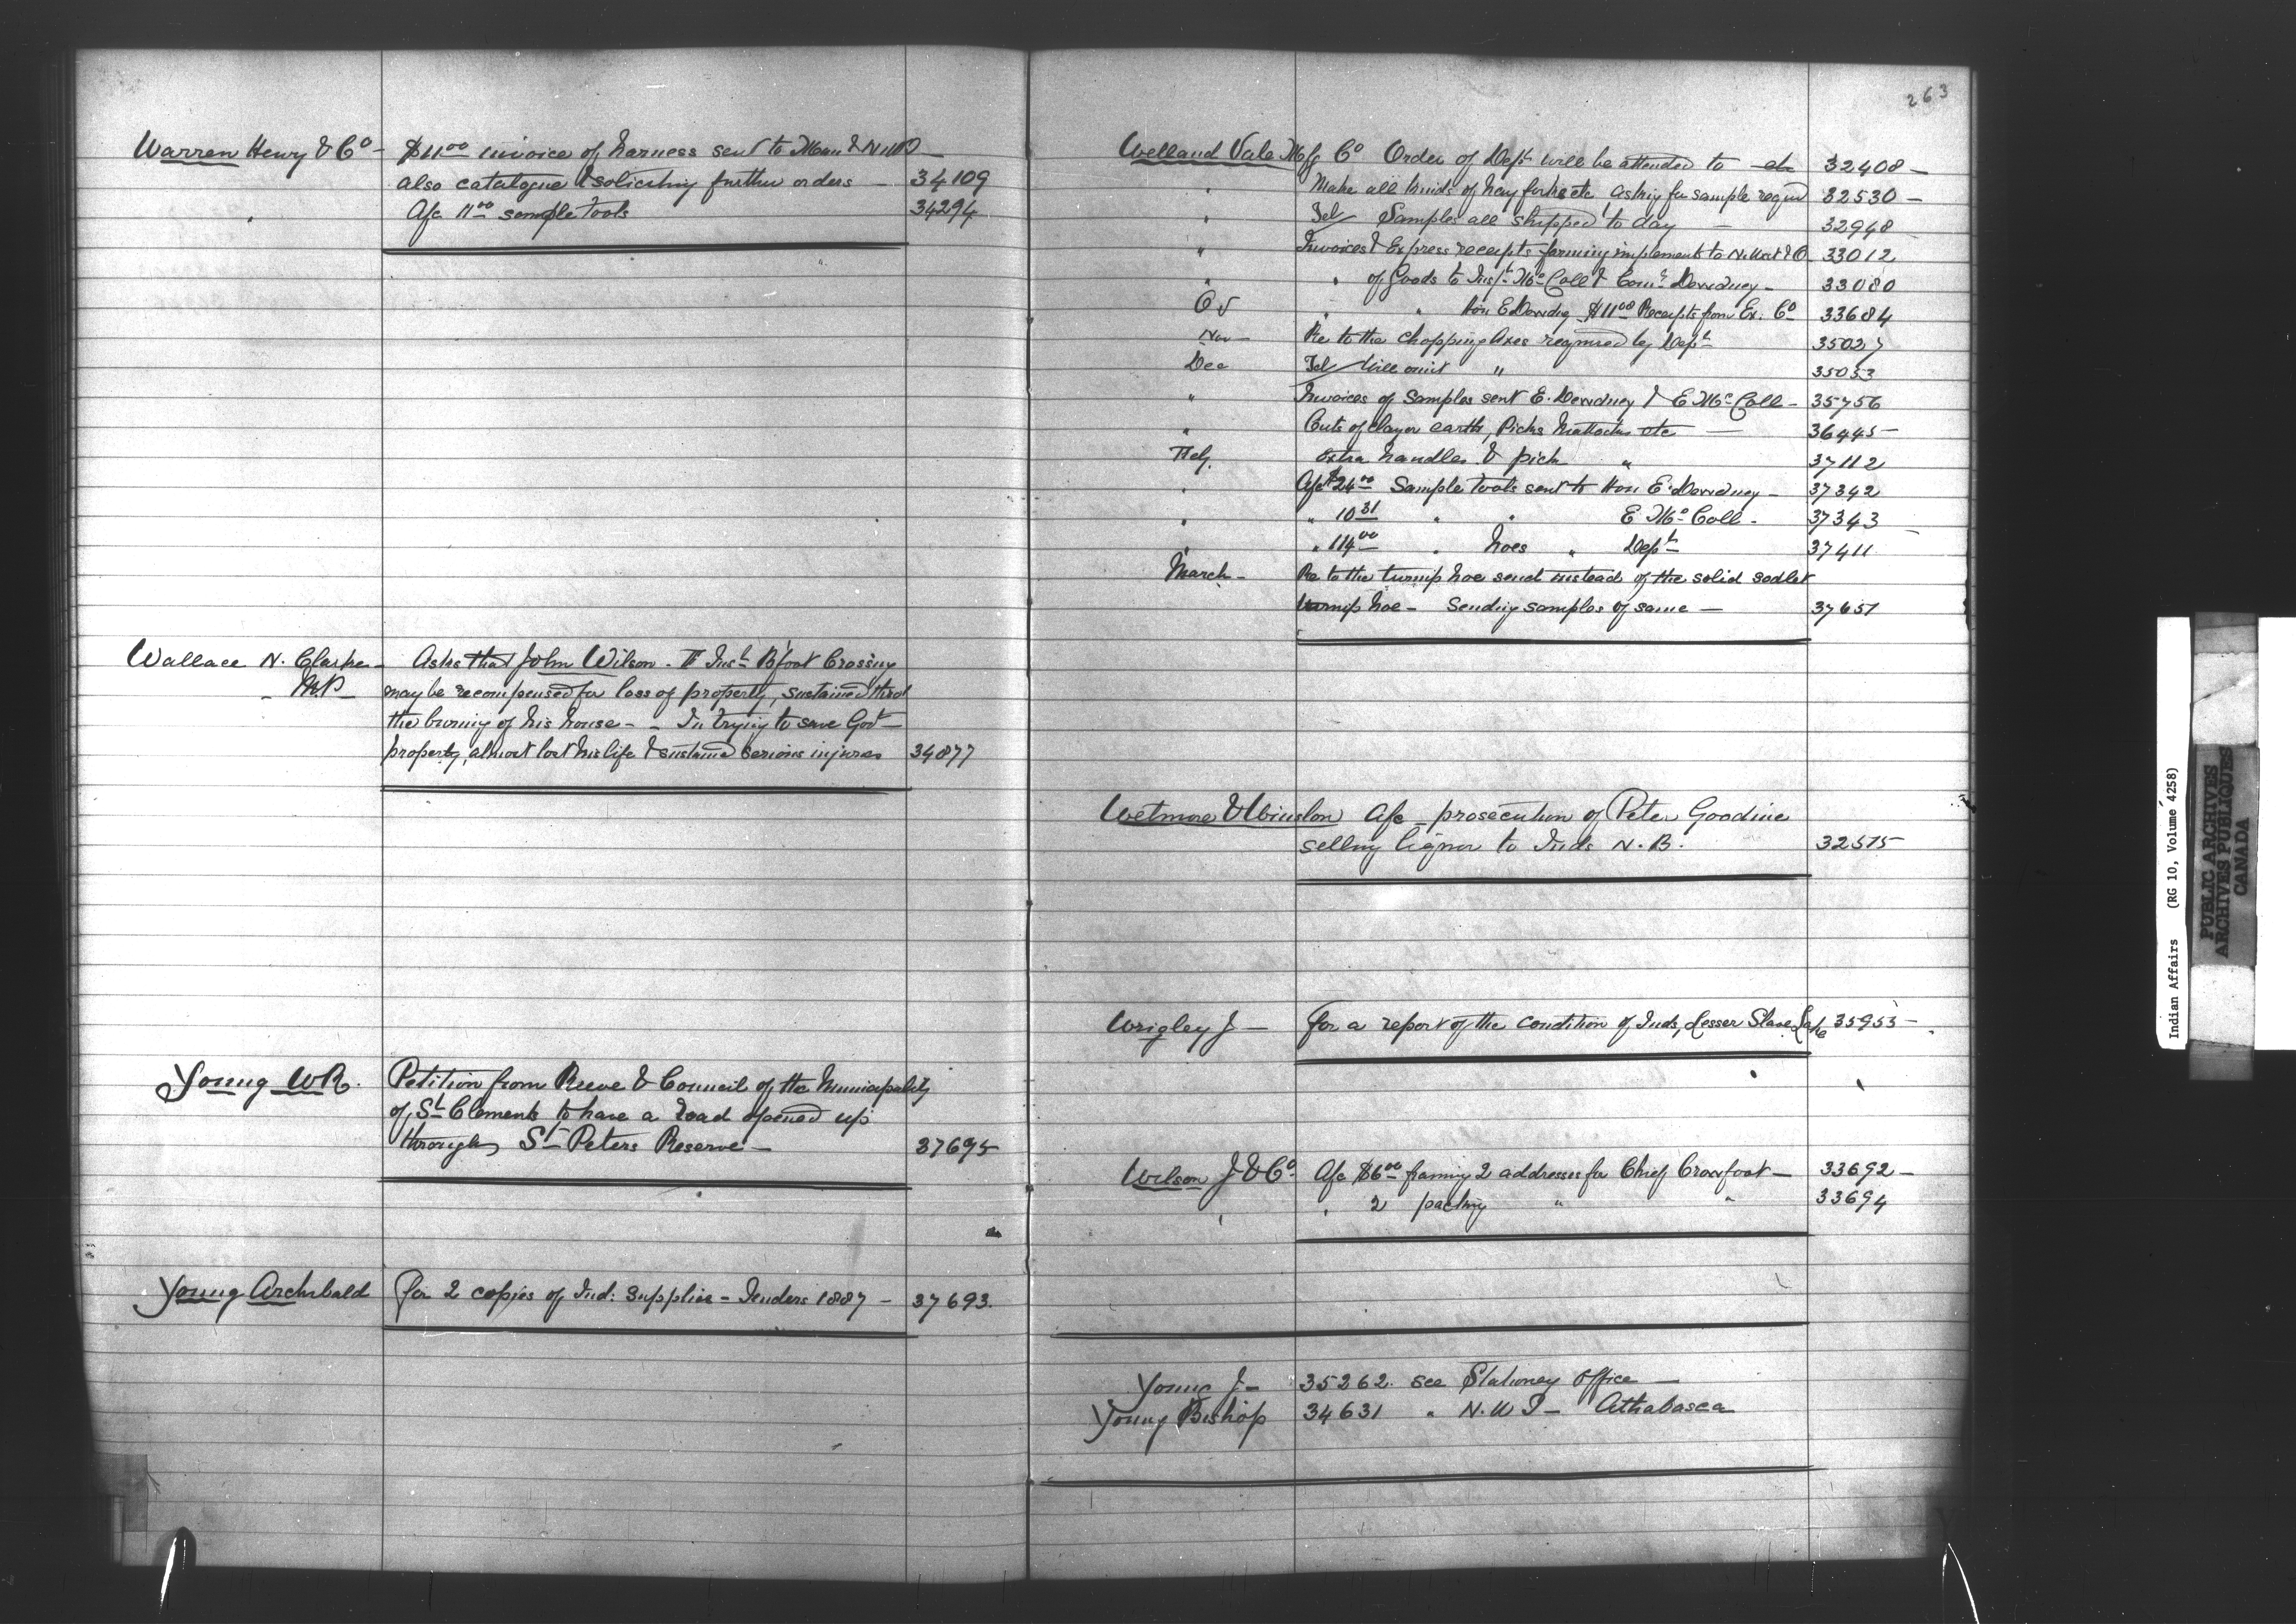 Warren Henry & Co — $11.00 invoice of harness sent to Man & N.W.
also catalogue & soliciting further orders — 34109
" A/c 11.00 sample tools 34294
Wallace N. Clarke — Asks that John Wilson - Inst Bfoot Crossing
M.P. may be recompensed for loss of property, sustained thro
the burning of his house - - In trying to save Govt
property, almost lost his life & sustained serious injures 34877
Young W.R. Petition from Reeve & Council of the Municipality
of St Clements to have a road opened up
through St Peters Reserve — 37695
Young Archibald for 2 copies of Ind: Supplies - Tenders 1887 — 37693.
263
Welland Vale Mfg Co Order of Dept will be attended to 32408 —
" Make all kinds of hay forks etc, asking for sample reqd 32530 —
" Tel Samples all shipped to day — 32948
" Invoices & Express receipts farming implements to 33012
" " of Goods to Inspt McColl & Comr Dewdney — 33080
" " Hon E Dewdney $11.00 Receipts from Ex. Co 33684
Nov — Re to the chopping axes required by Dept 35027
Dec Tel Will omit " 35053
" Invoices of samples sent E. Dewdney & E McColl — 35756
" Cuts of clay or earth, Picks Mattocks etc — 36445 —
Feby. Extra handles & pick " 37112
" A/c $24.00 Sample tools sent to Hon E. Dewdney — 37342
" " 10 31 " " E McColl — 37343
" " 114.00 " hoes " Dept 37411
March — Re to the turnip hoe send instead of the solid sodket
turnip hoe — Sending samples of same — 37651
Wetmore & Winslow A/c — prosecution of Peter Goodine
selling liquor to Inds N.B. 32575
Wrigley J — for a report of the condition of Inds, Lesser Slave Lake 35953 —
Wilson J & Co. A/c $6.00 framing 2 addresses for Chief Crowfoot — 33692 —
" " 2 packing " " 33694
Young J — 35262. see Stationey Office —
Young Bishop 34631 " N.W.T — Athabasca
Indian Affairs (RG 10, Volume 4258)
PUBLIC ARCHIVES
ARCHIVES PUBLIQUES
CANADA